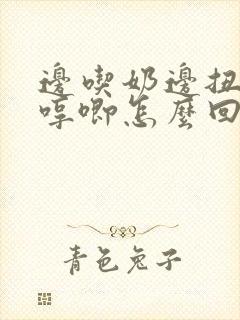 邊喫奶邊扭
哼唧怎麼回
青色兔子